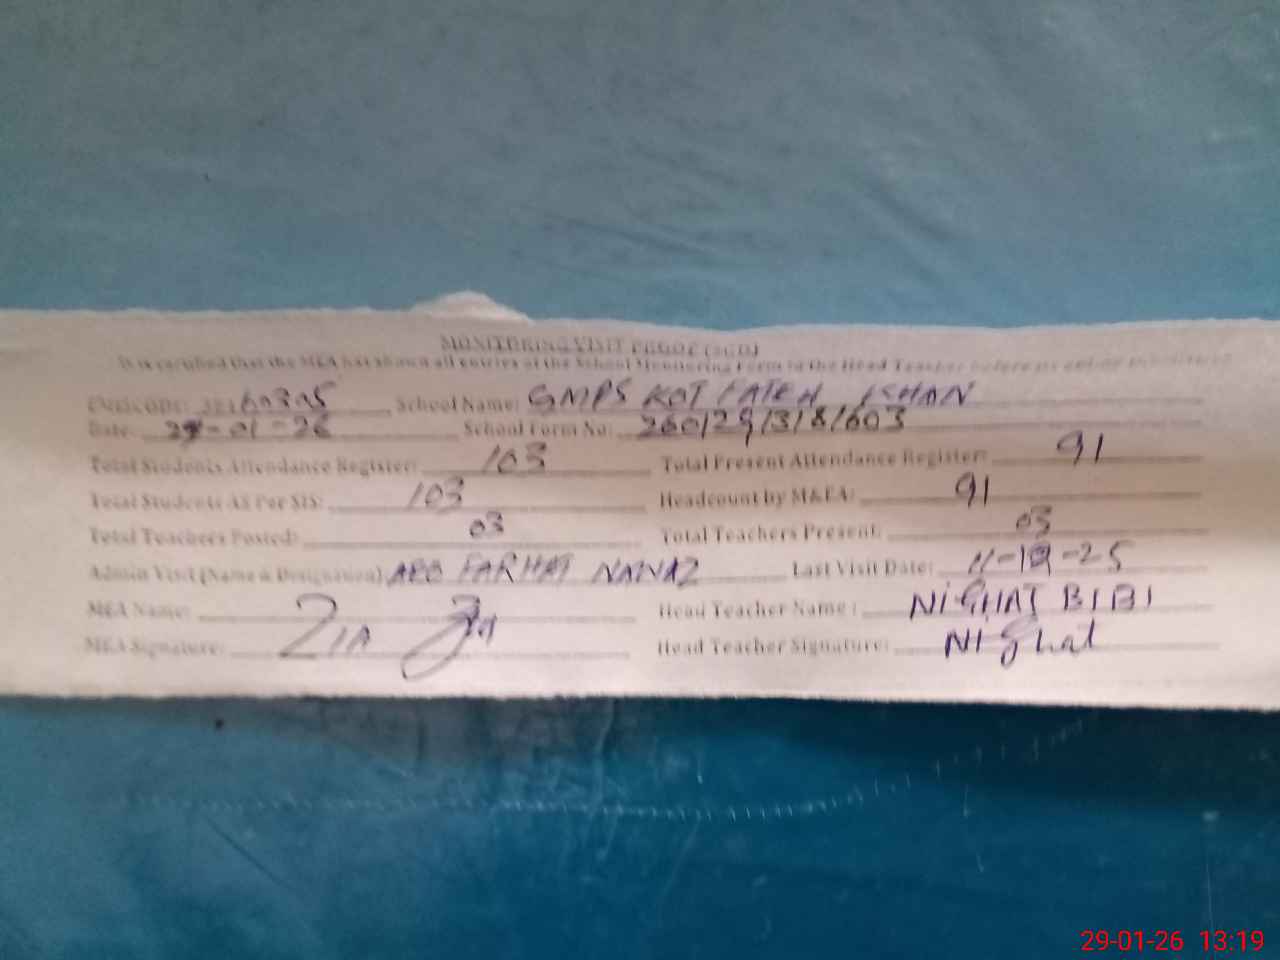 MONITORING VISIT PROOF (SCD)
It is certified that the MEA has shown all entries of the School Monitoring Form to the Head Teacher before its online
EMISCODE: School Name: GMPS KOT FATEH KHAN
Date: 29-01-26 School Form No: 26012913181603
Total Students Attendance Register: 103 Total Present Attendance Register: 91
Total Students AS Per SIS: 103 Headcount by MEA: 91
Total Teachers Posted: 03 Total Teachers Present: 03
Admin Visit (Name & Designation) AEO FARHAT NAWAZ Last Visit Date: 11-12-25
MEA Name: ZIA Head Teacher Name : NIGHAT BIBI
MEA Signature: Head Teacher Signature: Nighat
29-01-26 13:19